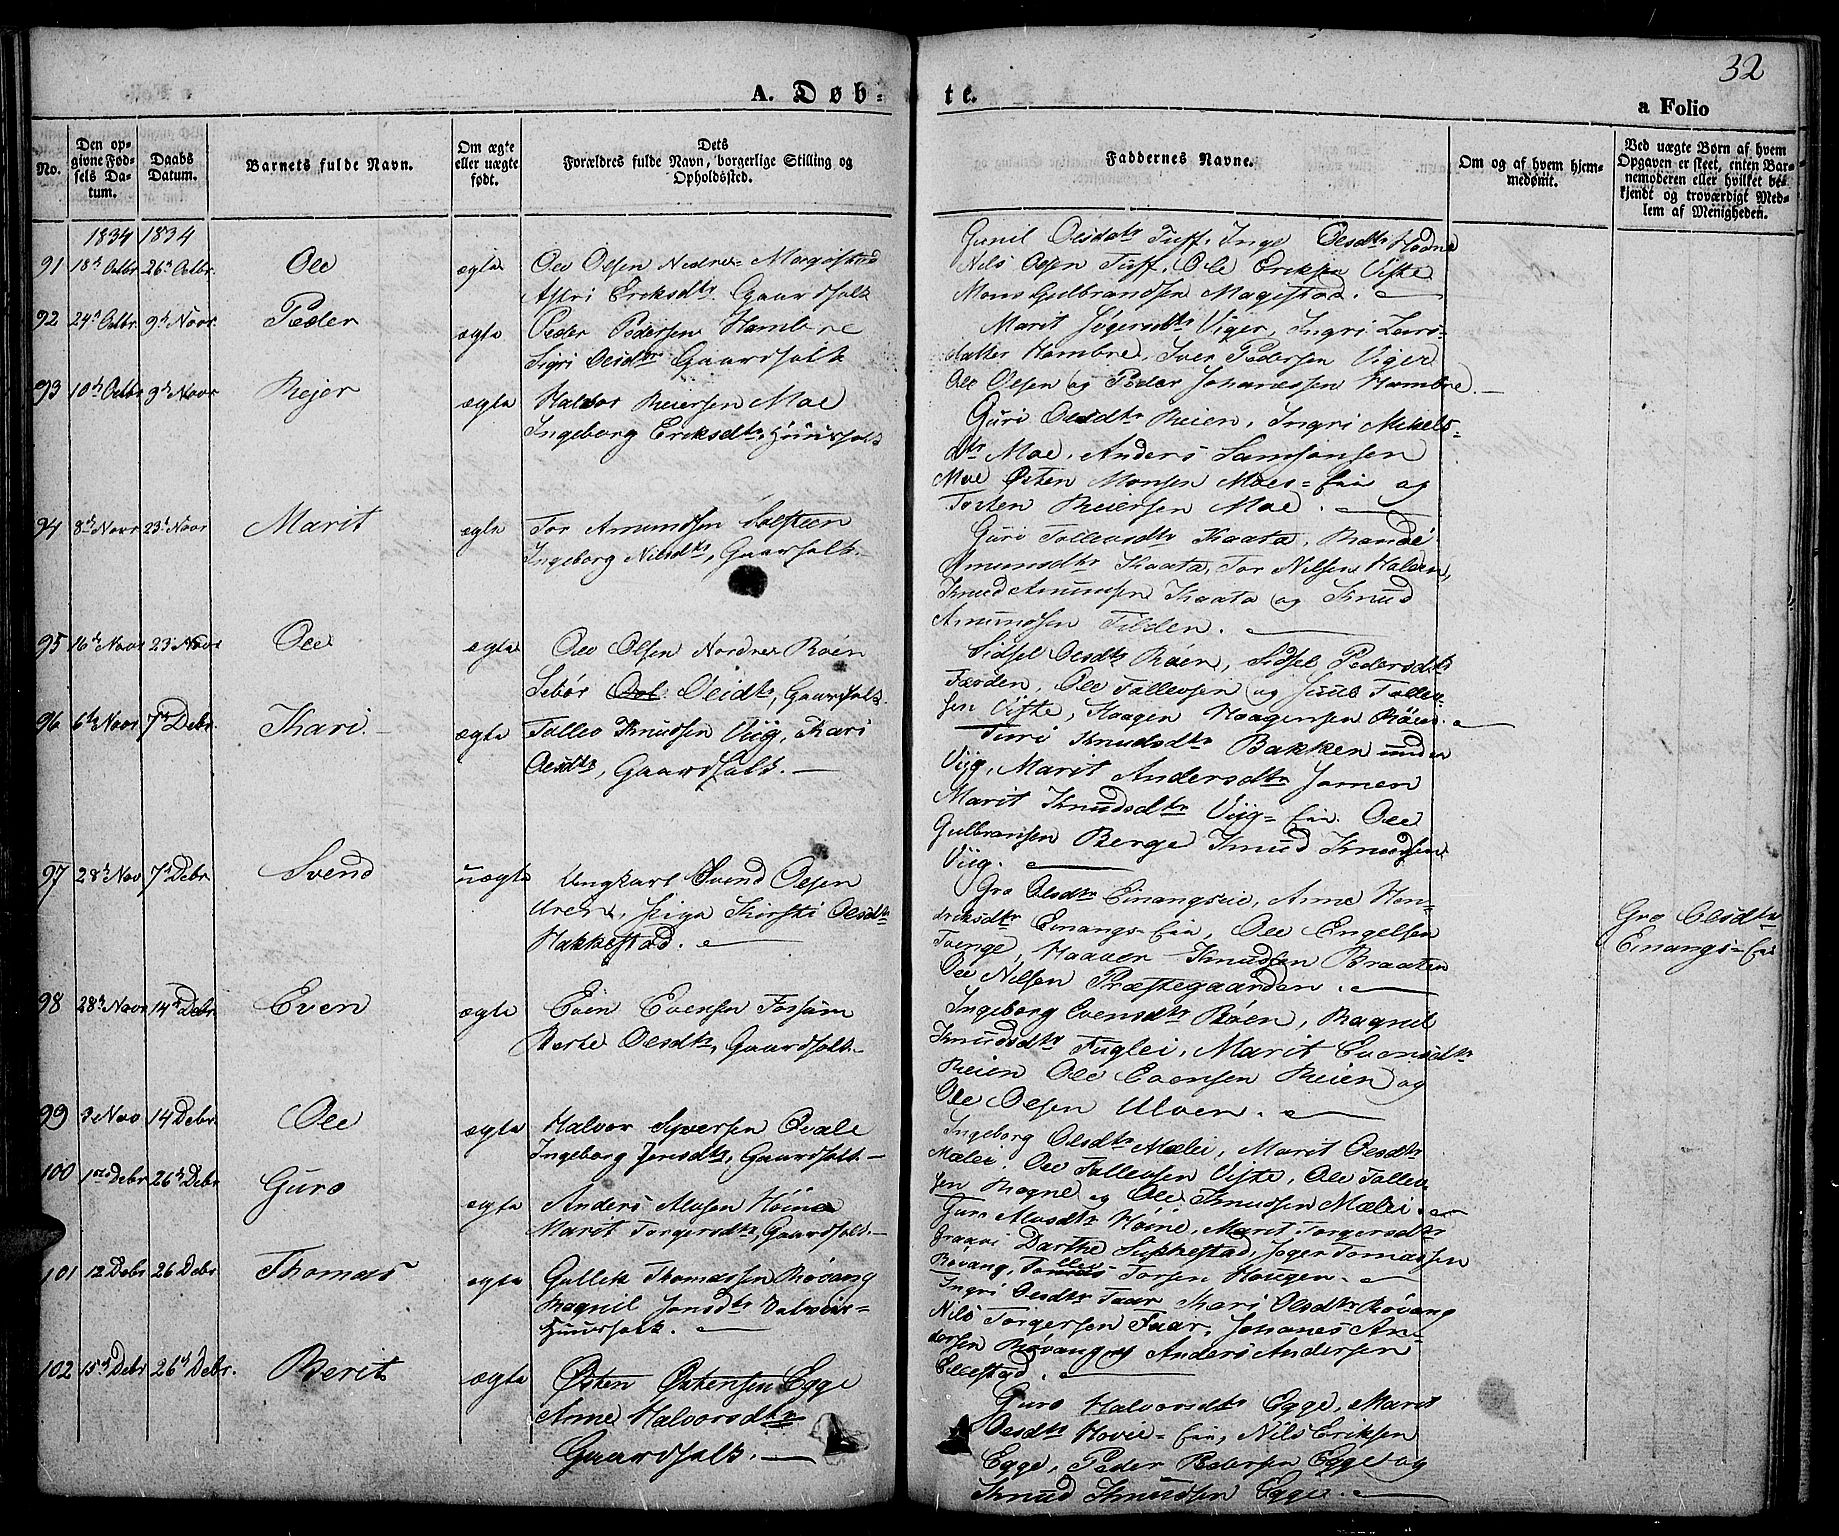 32
A. Døb-
te.
a Folio
No.
Den op-
givne Fød-
sels Da-
tum.
Daabs
Datum.
Barnets fulde Navn.
Om ægte
eller uægte
født.
Dets
Forældres fulde Navn, borgerlige Stilling og
Opholdssted.
Faddernes Navne.
Om og af hvem hjem-
medøbt.
Ved uægte Børn af hvem
Opgaven er skeet, enten Bar-
nemoderen eller hvilket be-
kjendt og troværdigt Med-
lem af Menigheden.
1834 1834
91 18d Octbr 26d Octbr. Ole ægte Ole Olsen Nedre Magistad
Astri Eriksdtr. Gaardfolk
Gunil Olsdatr Tuff, Inge Olsdtr Hovne
Nils Olsen Tuff, Ole Eriksen Viste
Mons Gulbrandsen Magistad.
92 24d Octbr. 9d Novr. Peder ægte Peder Pedersen Hambre
Sigri Olsdtr Gaardfolk
Marit Jøgersdtr Viger, Ingri Lars-
datter Hambre, Iver Pedersen Viger
Ole Olsen og Peder Johanessen Hambre.
93 10d Octbr 9d Novr Rejer ægte Halvor Reiersen Moe
Ingeborg Eriksdtr, Huusfolk
Guri Olsdtr Reien, Ingri Mikels-
dtr Moe, Anders Samsonsen
Moe Østen Monsen Moes-eie og
Torsten Reiersen Moe.
94 8d Novr 23d Novr Marit ægte Tor Amundsen Solsteen
Ingeborg Nilsdtr, Gaardfolk.
Guri Tollevsdtr Kaata, Rande
Amunsdtr Kaata, Tor Nilsen Halien,
Knud Amunsen Kaata og Knud
Amundsen Tilden.
95 16d Novr 23 Novr Ole ægte Ole Olsen Nordre Røen
Sebør Olsdtr, Gaardfolk.
Sidsel Olsdtr Røen, Sidsel Pedersdtr
Færden, Ole Tollevsen og Juul Tollev-
sen Viste, Haagen Haagensen Røen.
96 6d Novr 7d Debr. Kari. ægte Tollev Knudsen Viig, Kari
Olsdtr, Gaardfolk.
Turi Knudsdtr Bakken under
Viig, Marit Andersdtr Jomen
Marit Knudsdtr Viig-eie. Ole
Gulbransen Berge Knud Knudsen
Viig.
97 28d Nov 7d Debr Svend uægte Ungkarl Svend Olsen
Uren, Piga Kirsti Olsdtr
Hakkestad.
Gro Olsdtr Einangseie, Anne Hen-
driksdtr Einangs-eie, Ole Engelsen
Tvenge, Haavor Knudsen Braaten
Ole Nilsen Præstegaarden.
Gro Olsdtr
Einangs-eie
98 28d Novr 14d Debr. Even ægte Even Evensen Fossum
Berte Olsdtr, Gaardfolk.
Ingeborg Evensdtr Røen, Ragnil
Knudsdtr Fuglei, Marit Evensdtr
Reien Ole Evensen Reien og
Ole Olsen Ulven.
99 3 Nov 14 Debr. Ole ægte Halvor Syversen Qvale
Ingeborg Jensdtr, Gaardfolk.
Ingeborg Olsdtr Mælei, Marit Olsdtr
Mælei. Ole Tollevsen Viste, Ole Tollev-
sen Rogne og Ole Knudsen Mælei.
100 1ste Debr 26d Debr Guro ægte Anders Alvsen Høine
Marit Torgersdtr, Gaardfolk.
Guro Alvsdtr Høine, Marit Torgersdtr
Graani Darthe Sukkestad, Joger Tomassen
Røvang, Torsen Haugen.
101 12 Debr 26 Debr Thomas ægte Gullik Thomassen Røvang
Ragnil Jonsdtr
Huusfolk.
Ingri Olsdtr Faar, Kari Olsdtr Røvang
Nils Torgersen Faar, Johanes An-
dersen Røvang og Anders Andersen
Ellestad.
102 15d Debr 26d Debr. Berit ægte Østen Østensen Egge
Anne Halvorsdtr
Gaardfolk.
Guro Halvorsdtr Egge, Marit
Olsdtr Hovie-eie, Nils Eriksen
Egge, Peder Pedersen Egge og
Knud Knudsen Egge.